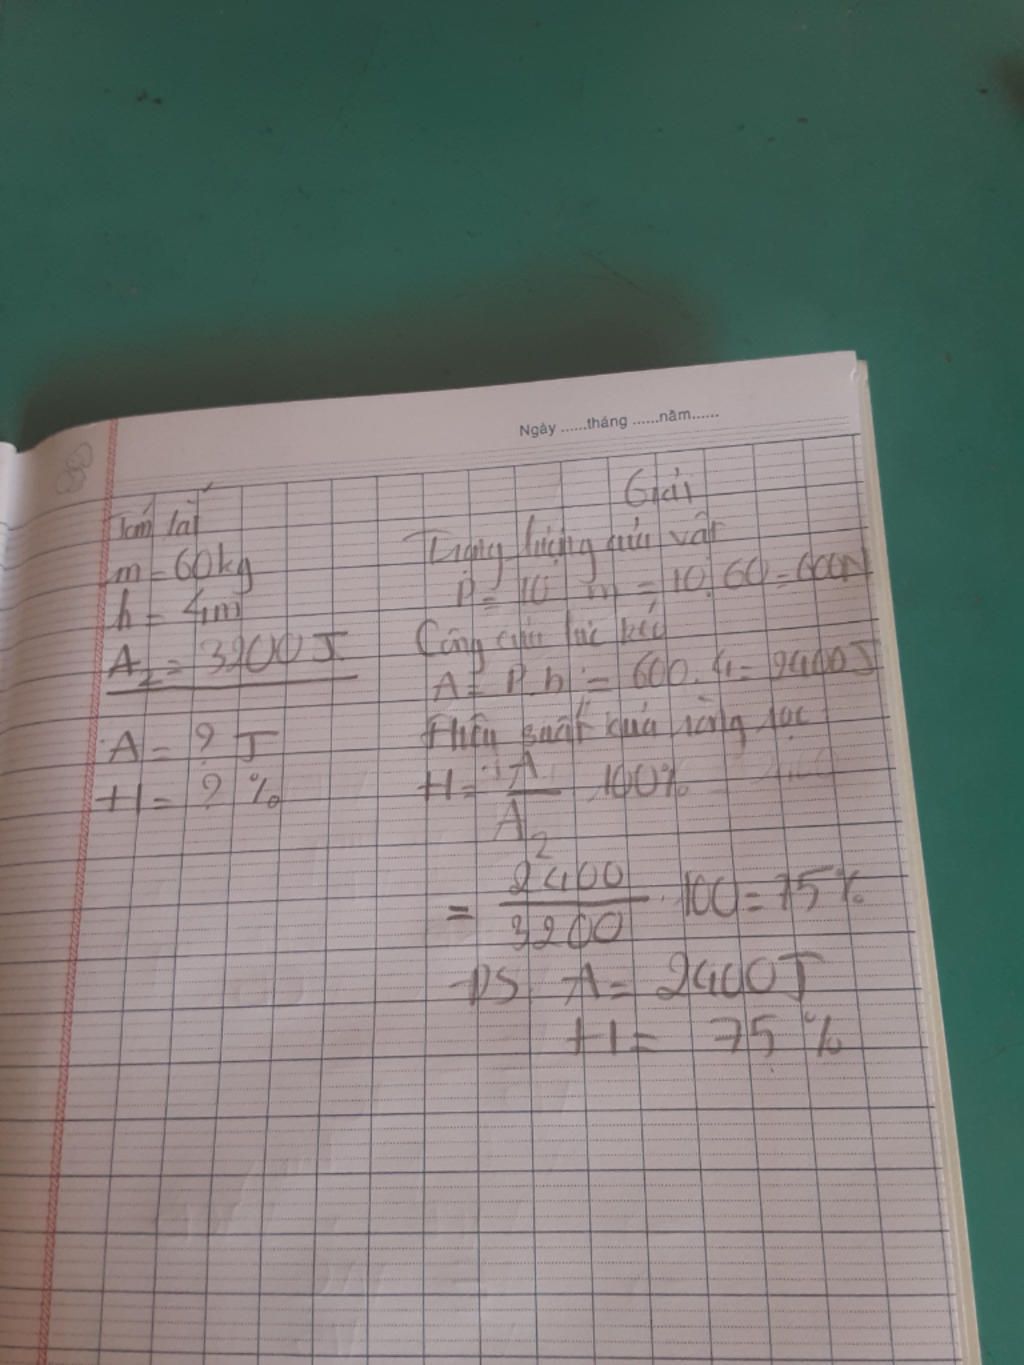 Ngày ......tháng ......năm......
Tóm tắt
m = 60kg
h = 4m
A2 = 3200J
A = ? J
H = ? %
Giải
Trọng lượng của vật
P = 10 m = 10.60 = 600N
Công của lực kéo
A = P.h = 600.4 = 2400J
Hiệu suất của ròng rọc
H = A / A2 . 100%
= 2400 / 3200 . 100 = 75%
ĐS A = 2400J
H = 75 %